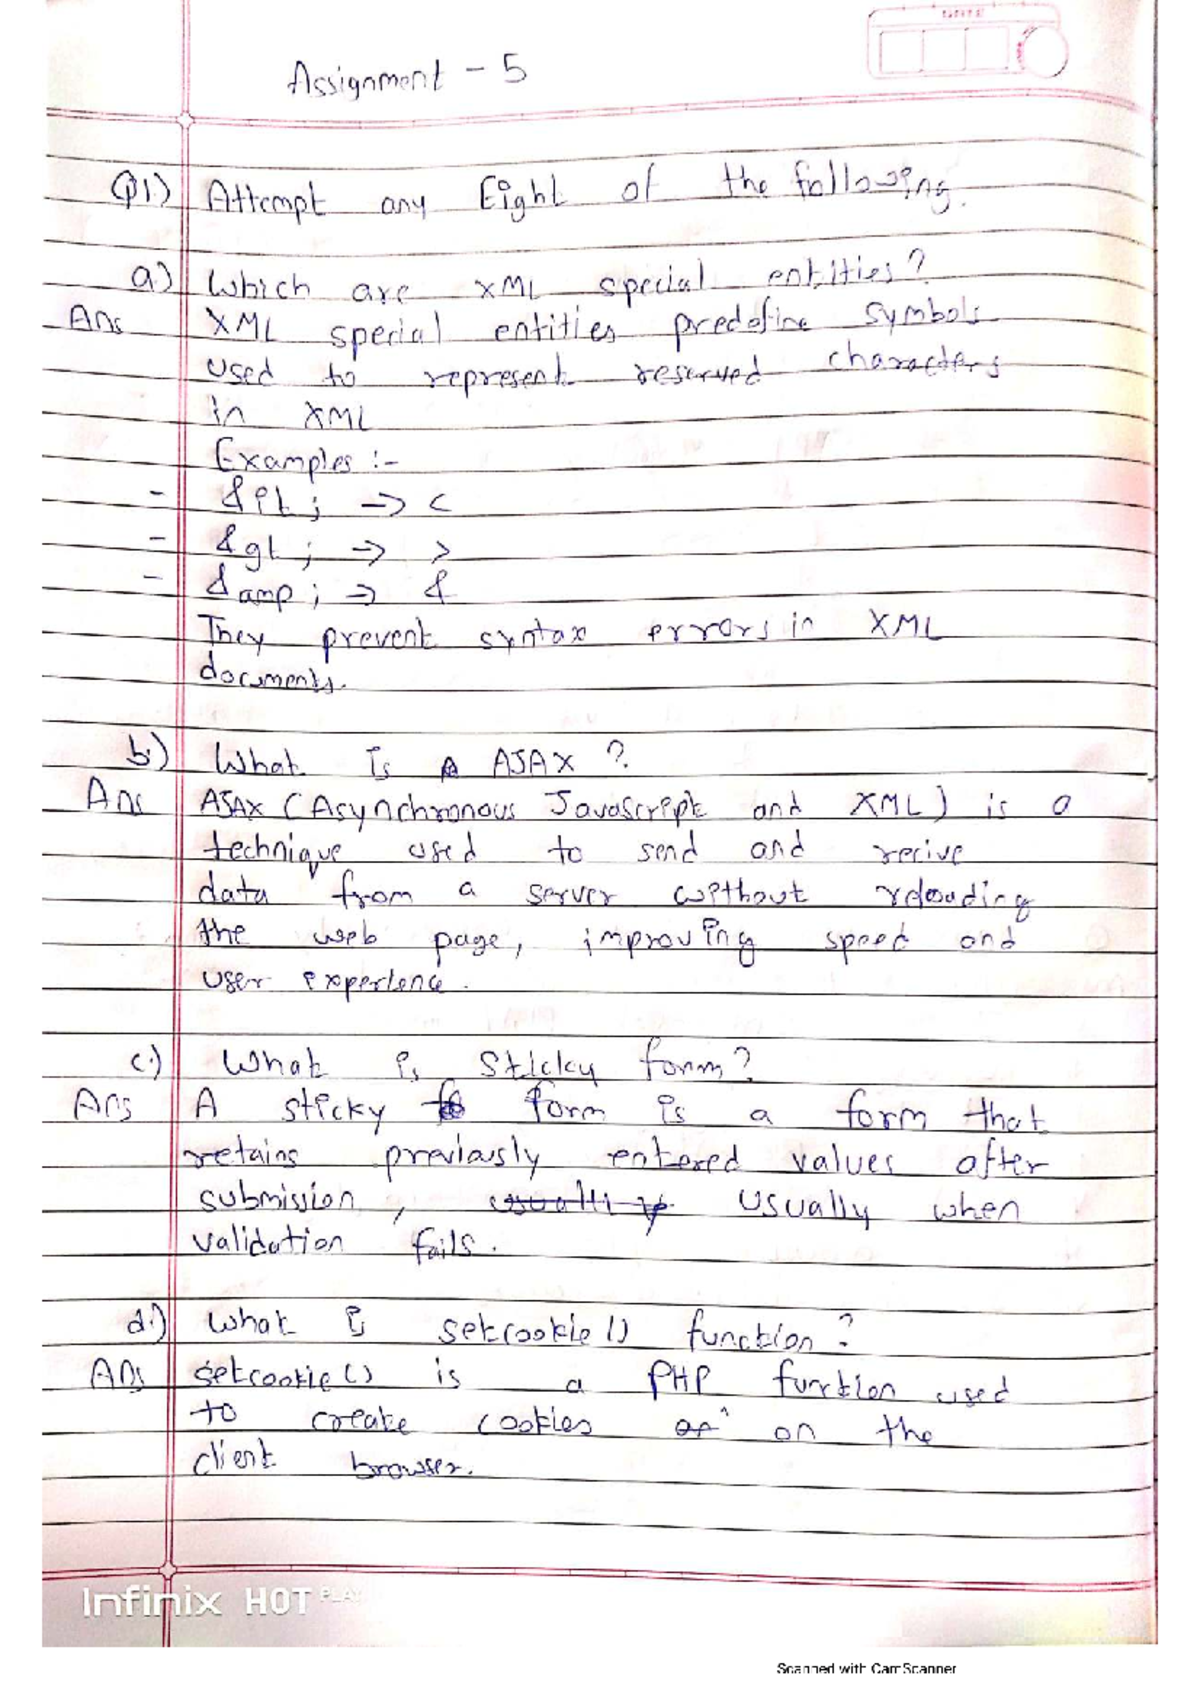 DATE
Assignment - 5
Q1.) Attempt any Eight of the following.
a.) Which are XML special entities?
Ans XML special entities predefine symbols
used to represent reserved characters
in XML
Examples :-
- &lt; -> <
- &gt; -> >
- &amp; -> &
They prevent syntax errors in XML
documents.
b.) What is A AJAX ?
Ans AJAX (Asynchronous Javascript and XML) is a
technique used to send and recive
data from a server without reloading
the web page, improving speed and
user experience.
c.) What is Sticky form?
Ans A sticky form is a form that
retains previously entered values after
submission, usually usually when
validation fails.
d.) What is setcookie() function?
Ans setcookie() is a PHP function used
to create cookies on the
client browser.
Infinix HOT PLAY
Scanned with CamScanner